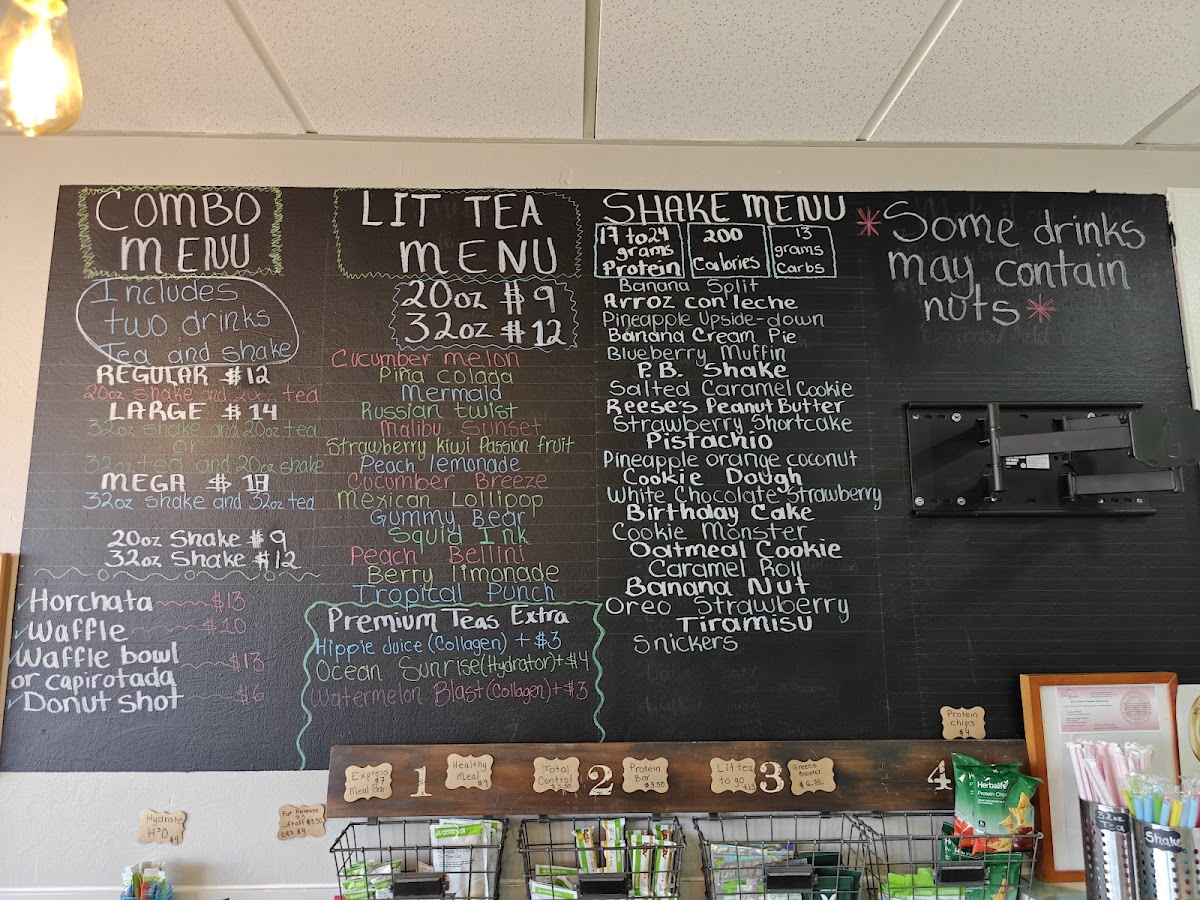 COMBO
MENU
Includes
two drinks
Tea and shake
REGULAR $12
20oz shake and 20oz tea
LARGE $14
32oz shake and 20oz tea
or
32oz tea and 20oz shake
MEGA $
32oz shake and 32oz tea
20oz Shake $9
32oz Shake $12
Horchata $13
Waffle $10
Waffle bowl
or capirotada $13
Donut shot $6
LIT TEA
MENU
20oz $9
32oz $12
Cucumber melon
Piña colada
Mermaid
Russian twist
Malibu Sunset
Strawberry kiwi Passion fruit
Peach lemonade
Cucumber Breeze
Mexican Lollipop
Gummy Bear
Squid Ink
Peach Bellini
Berry limonade
Tropical Punch
Premium Teas Extra
Hippie Juice (Collagen) + $3
Ocean Sunrise(Hydrator)+$4
Watermelon Blast(Collagen)+$3
SHAKE MENU
17 to 24
grams
Protein
200
Calories
13
grams
Carbs
Banana Split
Arroz con leche
Pineapple Upside-down
Banana Cream Pie
Blueberry Muffin
P.B. Shake
Salted Caramel Cookie
Reese's Peanut Butter
Strawberry Shortcake
Pistachio
Pineapple orange coconut
Cookie Dough
White Chocolate Strawberry
Birthday Cake
Cookie Monster
Oatmeal Cookie
Caramel Roll
Banana Nut
Oreo Strawberry
Tiramisu
Snickers
*Some drinks
may contain
nuts*
Protein
chips
$4
Express
$7
Meal Bar
1
Healthy
Meal
$9
Total
Control
$3.50
2
Protein
Bar
$3.50
Lit tea
to go
$13
3
Greens
Booster
4
Hydrate
H³O $4
Fat Release
Liftoff $3.50
CR7 $4
Herbalife
Protein Chips
32oz
Tea
Shake